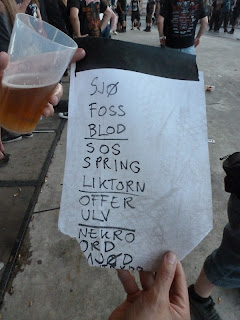 SJØ
FOSS
BLOD
SOS
SPRING
LIKTORN
OFFER
ULV
NEKRO
ORD
MJØD